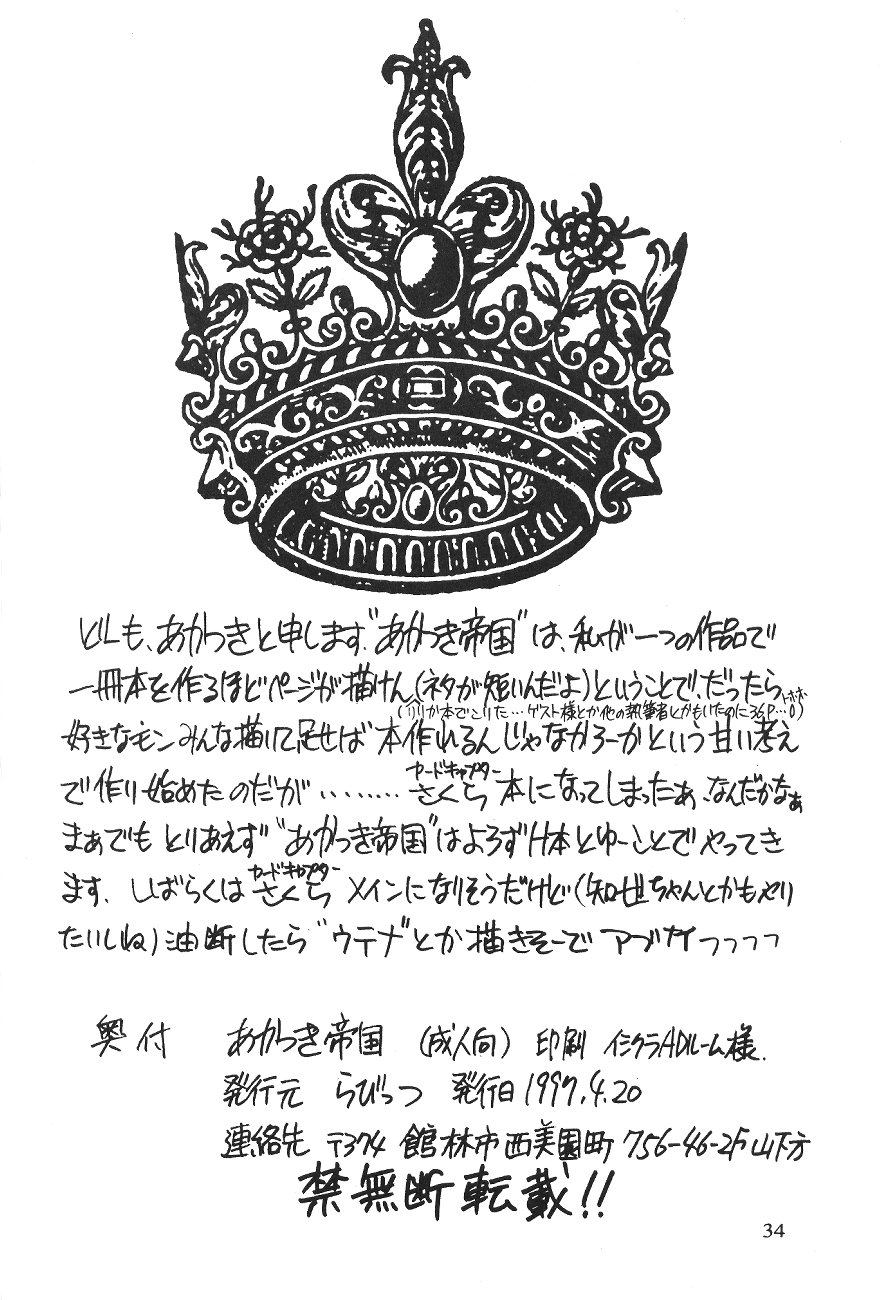 どーも、あかつきと申します。"あかつき帝国"は、私が一つの作品で
一冊本を作るほどページが描けん(ネタが短いんだよ)ということで、だったら
(リリカ本でこりた…ゲスト様とか他の執筆者とかもいたのに36P…0)トホホ
好きなモンみんな描いて足せば 本作れるんじゃなかろーかという甘い考え
カードキャプター
で作り始めたのだが ‥‥‥‥ さくら 本になってしまったぁ、なんだかなぁ
まぁでも とりあえず "あかつき帝国"はよろずH本とゆーことでやってき
カードキャプター
ます。しばらくは さくら メインになりそうだけど(知世ちゃんとかもやり
たいしね)油断したら "ウテナ"とか描きそーで アブナイっっっっ
奥付 あかつき帝国 (成人向) 印刷 イシクラADルーム様.
発行元 らびっつ 発行日 1997.4.20
連絡先 〒374 館林市西美園町 756-46-2F 山下方
禁無断転載!!
34